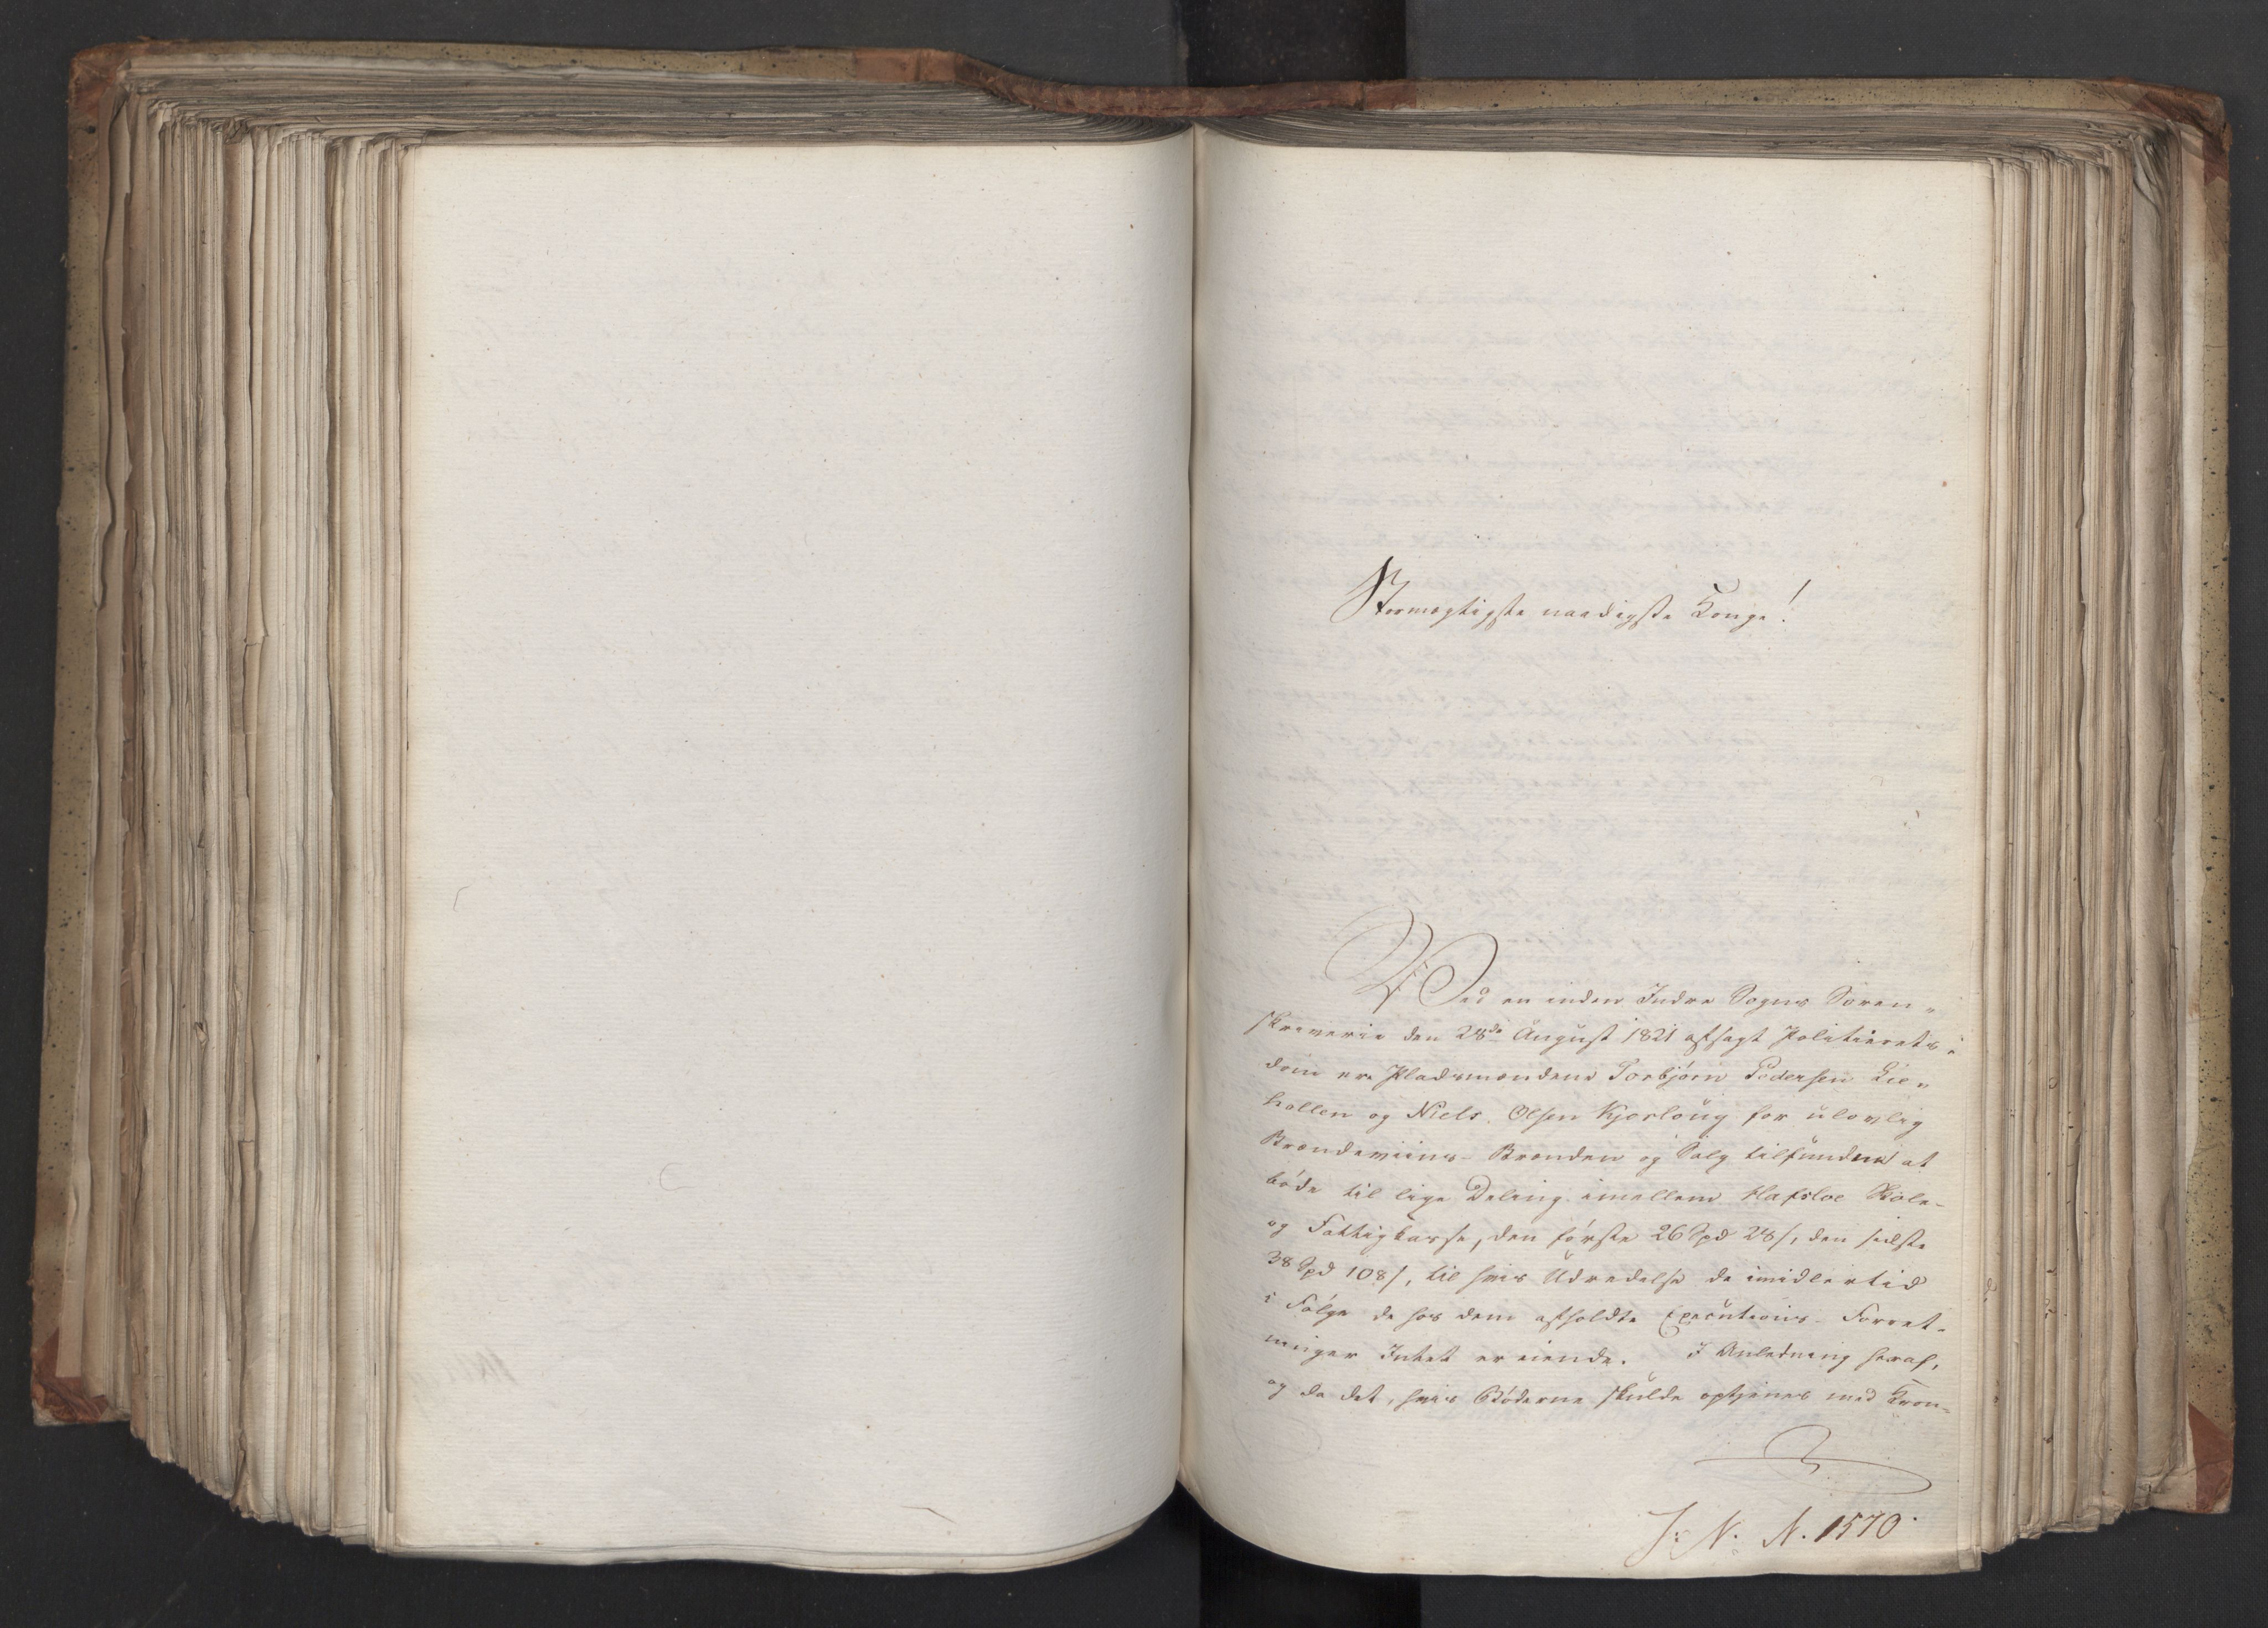 Stormægtigste naadigste Konge!
Ved en inden Indre Sogns Soren-
skriverie den 28de August 1821 afsagt Politierets-
dom ere Pladsmændene Torbjørn Pedersen Lie-
hollen og Niels Olsen Kjorloug for ulovlig
Brændeviins-Brænden og Salg tilfundne at
bøde til lige Deling imellem Hafsloe Skole-
og Fattigkasse, den første 26 Spd 28 s, den sidste
38 Spd 108 s, til hvis Udredelse de imidlertid
i Følge de hos dem afholdte Executions-Forret-
ninger Intet er eiende. I Anledning heraf,
og da det, hvis Bøderne skulde aftjenes med Kron-
J: N. N. 1570.